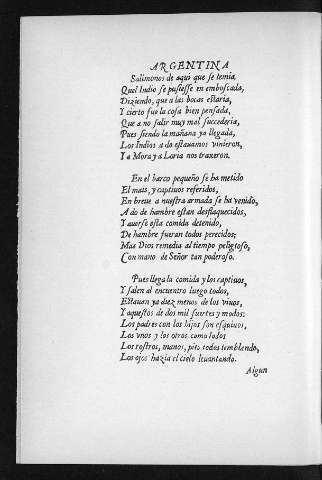 ARGENTINA
Salimonos de aqui que se temia
Quel Indio se pusiesse en emboscada,
Diziendo, que a las bocas estaria,
Y cierto fue la cosa bien pensada,
Que a no salir muy mal succederia,
Pues siendo la mañana ya llegada,
Los Indios a do estauamos vinieron,
Y a Mora y a Loria nos traxeron.
En el barco pequeño se ha metido
El mais, y captiuos referidos,
En breue a nuestra armada se ha venido,
A do de hambre estan desflaquecidos,
Y auerse esta comida detenido,
De hambre fueran todos perecidos;
Mas Dios remedia al tiempo peligroso,
Con mano de Señor tan poderoso.
Pues llega la comida y los captiuos,
Y salen al encuentro luego todos,
Estauan ya diez menos de los viuos,
Y aquestos de dos mil suertes y modos:
Los padres con los hijos son esquiuos,
Los vnos y los otros como lodos
Los rostros, manos, pies todos temblando,
Los ojos hazia el cielo leuantando.
Algun